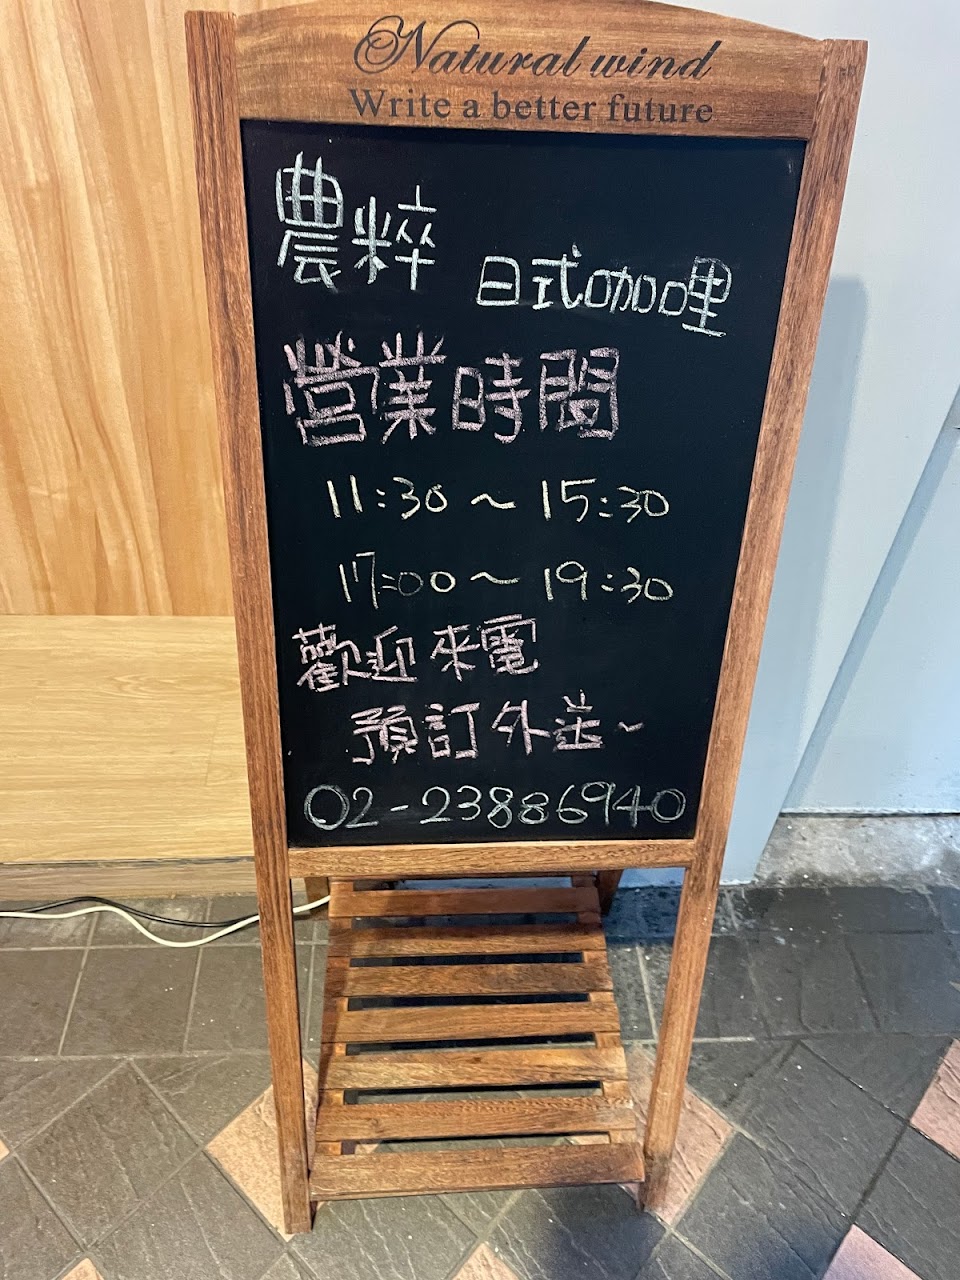 Natural wind
Write a better future
農粹 日式咖哩
營業時間
11:30 ~ 15:30
17:00 ~ 19:30
歡迎來電
預訂外送~
02-23886940